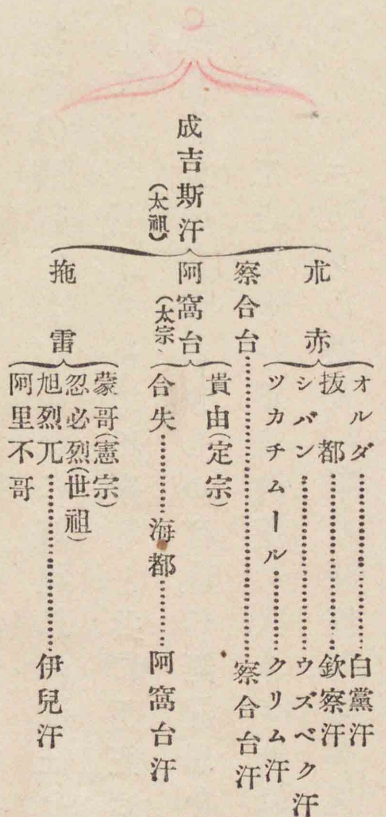 成吉斯汗
(太祖)
朮赤
オルダ………白黨汗
抜都………欽察汗
シバン………ウズベク汗
ツカチムール………クリム汗
察合台………察合台汗
阿窩台
(太宗)
貴由(定宗)
合失………海都………阿窩台汗
拖雷
蒙哥(憲宗)
忽必烈(世祖)
旭烈兀………伊兒汗
阿里不哥